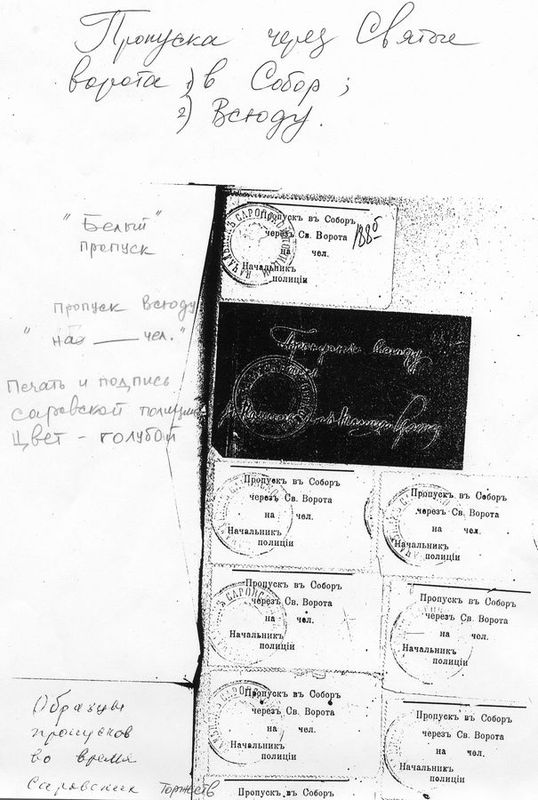 Пропуска через Святые
ворота 1) в Собор;
2) Всюду.
"Белый"
пропуск
Пропускъ въ Соборъ
черезъ Св. Ворота
на чел.
Начальникъ
полиціи
188б
Пропуск всюду
" на — чел."
Печать и подпись
саровской полиции
Цвет - голубой
всюду
Пропускъ въ Соборъ
черезъ Св. Ворота
на чел.
Начальникъ
полиціи
Пропускъ въ Соборъ
черезъ Св. Ворота
на чел.
Начальникъ
полиціи
Пропускъ въ Соборъ
черезъ Св. Ворота
на чел.
Начальникъ
полиціи
Пропускъ въ Соборъ
черезъ Св. Ворота
на чел.
Начальникъ
полиціи
Пропускъ въ Соборъ
черезъ Св. Ворота
на чел.
Начальникъ
полиціи
Пропускъ въ Соборъ
черезъ Св. Ворота
на чел.
Начальникъ
полиціи
Пропускъ въ Соборъ
Образцы
пропусков
во время
Саровских Торжеств